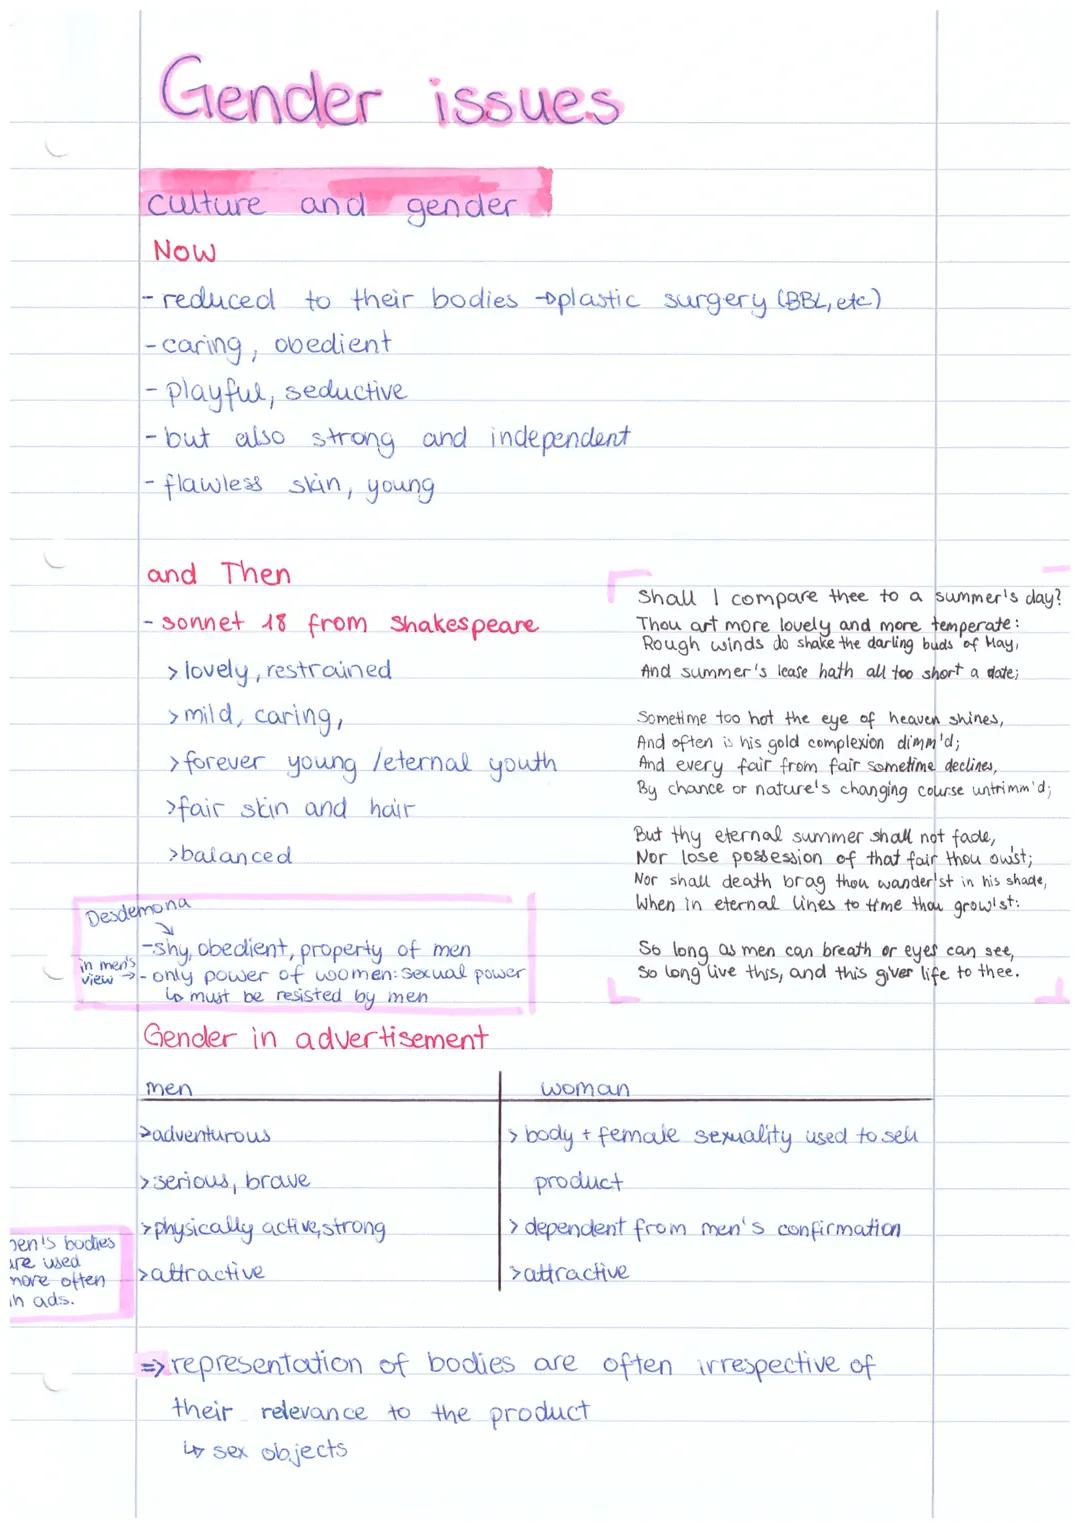 Gender issues
culture and gender
Now
- reduced to their bodies → plastic surgery (BBL, etc)
- caring, obedient
- playful, seductive
- but also strong and independent
- flawless skin, young
and Then
- sonnet 18 from Shakespeare
> lovely, restrained
> mild, caring,
> forever young / eternal youth
> fair skin and hair
> balanced
Shall I compare thee to a summer's day?
Thou art more lovely and more temperate:
Rough winds do shake the darling buds of May,
And summer's lease hath all too short a date;
Sometime too hot the eye of heaven shines,
And often is his gold complexion dimm'd;
And every fair from fair sometime declines,
By chance or nature's changing course untrimm'd;
But thy eternal summer shall not fade,
Nor lose possession of that fair thou ow'st;
Nor shall death brag thou wander'st in his shade,
When in eternal lines to time thou grow'st:
So long as men can breath or eyes can see,
So long live this, and this giver life to thee.
Desdemona
- shy, obedient, property of men
in men's view → - only power of women: sexual power
↳ must be resisted by men
Gender in advertisement
men woman
> adventurous > body + female sexuality used to sell
> serious, brave product
> physically active, strong > dependent from men's confirmation
> attractive > attractive
men's bodies
are used
more often
in ads.
=> representation of bodies are often irrespective of
their relevance to the product
↳ sex objects